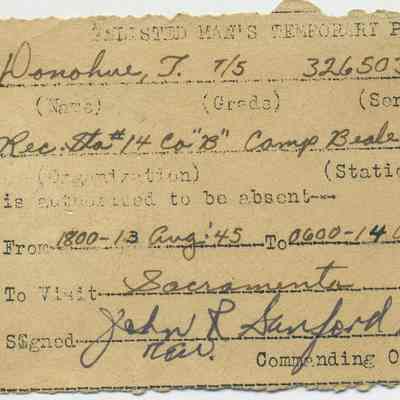 ENLISTED MAN'S TEMPORARY P
Donohue, T. T/5 326503
(Name) (Grade) (Ser
Rec. Sta #14 Co "B" Camp Beale
(Organization) (Static
is authorized to be absent---
From 1800-13 Aug '45 To 0600-14 A
To Visit Sacramento
Signed John R Sanford
Commanding O